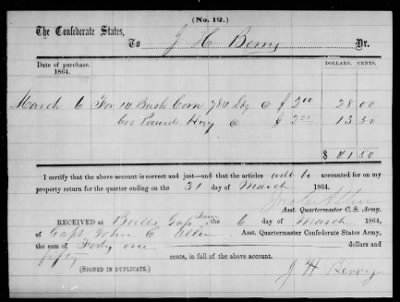 (No. 12.)
The Confederate States,
To J H Berry Dr.
Date of purchase. 1864. DOLLARS. CENTS.
March 6 For 14 Bush Corn 784 @ $ 2.00 28 00
Pounds Hay @ $ 13 50
$ 41 50
I certify that the above account is correct and just—and that the articles will be accounted for on my
property return for the quarter ending on the 31 day of March 1864.
Asst. Quartermaster C. S. Army.
RECEIVED at Bulls Gap Tenn the 6 day of March 1864,
of Capt. John C Asst. Quartermaster Confederate States Army,
the sum of Forty one dollars and
fifty cents, in full of the above account.
(SIGNED IN DUPLICATE.) J H Berry